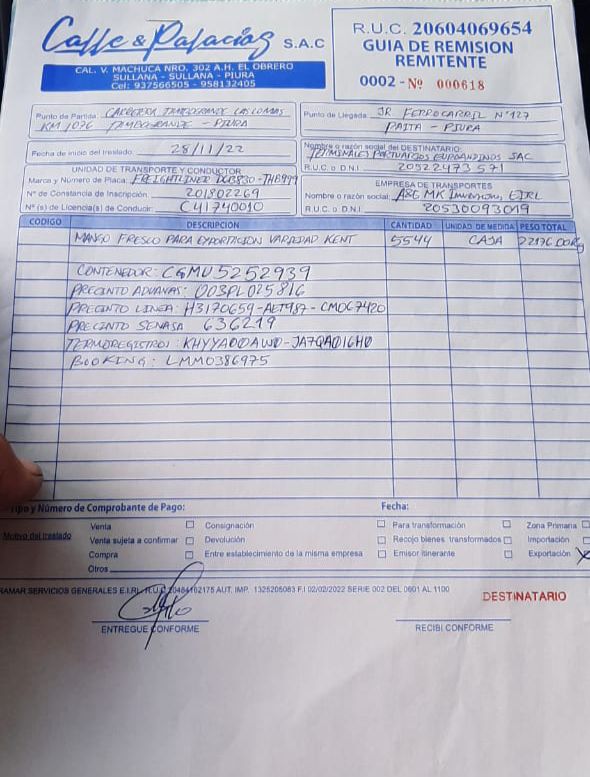 Calle & Palacios S.A.C
CAL. V. MACHUCA NRO. 302 A.H. EL OBRERO
SULLANA - SULLANA - PIURA
Cel: 937566505 - 958132405
R.U.C. 20604069654
GUIA DE REMISION
REMITENTE
0002 - Nº 000618
Punto de Partida: CARRETERA TAMBOGRANDE LAS LOMAS
KM 1076 TAMBOGRANDE - PIURA
Punto de Llegada: JR FERROCARRIL N°127
PAITA - PIURA
Fecha de inicio del traslado: 28/11/22
Nombre o razón social del DESTINATARIO:
TERMINALES PORTUARIOS EUROANDINOS SAC
R.U.C. o D.N.I. 20522473571
UNIDAD DE TRANSPORTE Y CONDUCTOR
Marca y Número de Placa: FREIGHTLINER
N° de Constancia de Inscripción: 201802269
N° (s) de Licencia(s) de Conducir: C41740010
EMPRESA DE TRANSPORTES
Nombre o razón social: A&G MK Inversion, EIRL
R.U.C. o D.N.I. 20530093019
CODIGO DESCRIPCION CANTIDAD UNIDAD DE MEDIDA PESO TOTAL
MANGO FRESCO PARA EXPORTICION VARIEDAD KENT 5544 CAJA
CONTENEDOR: CGMU5252939
PRECINTO ADUANAS: 003PL025816
PRECINTO LINEA: H3170659-AET987-CMDC7420
PRECINTO SENASA 636219
TERMOREGISTROS: KHYYA00AW0-JA7QA016H0
BOOKING: LMM0386975
Tipo y Número de Comprobante de Pago: Fecha:
Motivo del traslado
Venta Consignación Para transformación Zona Primaria
Venta sujeta a confirmar Devolución Recojo bienes transformados Importación
Compra Entre establecimiento de la misma empresa Emisor itinerante Exportación X
Otros
RAMAR SERVICIOS GENERALES E.I.R.L. R.U.C. 20484102175 AUT. IMP. 1325205083 F.I 02/02/2022 SERIE 002 DEL 0601 AL 1100
DESTINATARIO
ENTREGUE CONFORME RECIBI CONFORME